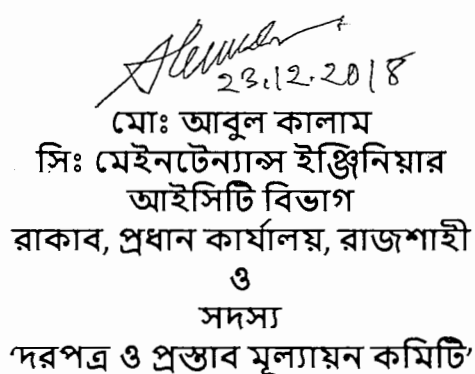 23.12.2018
মোঃ আবুল কালাম
সিঃ মেইনটেন্যান্স ইঞ্জিনিয়ার
আইসিটি বিভাগ
রাকাব, প্রধান কার্যালয়, রাজশাহী
ও
সদস্য
‘দরপত্র ও প্রস্তাব মূল্যায়ন কমিটি’